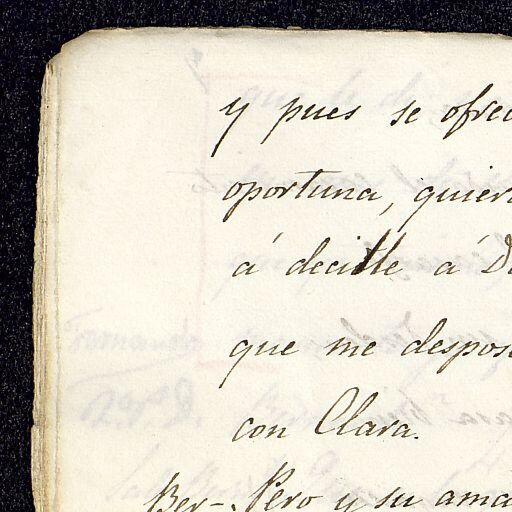 y pues se ofrec
oportuna, quier
á decille á D
que me despos
con Clara.
Ber-. Pero y su ama